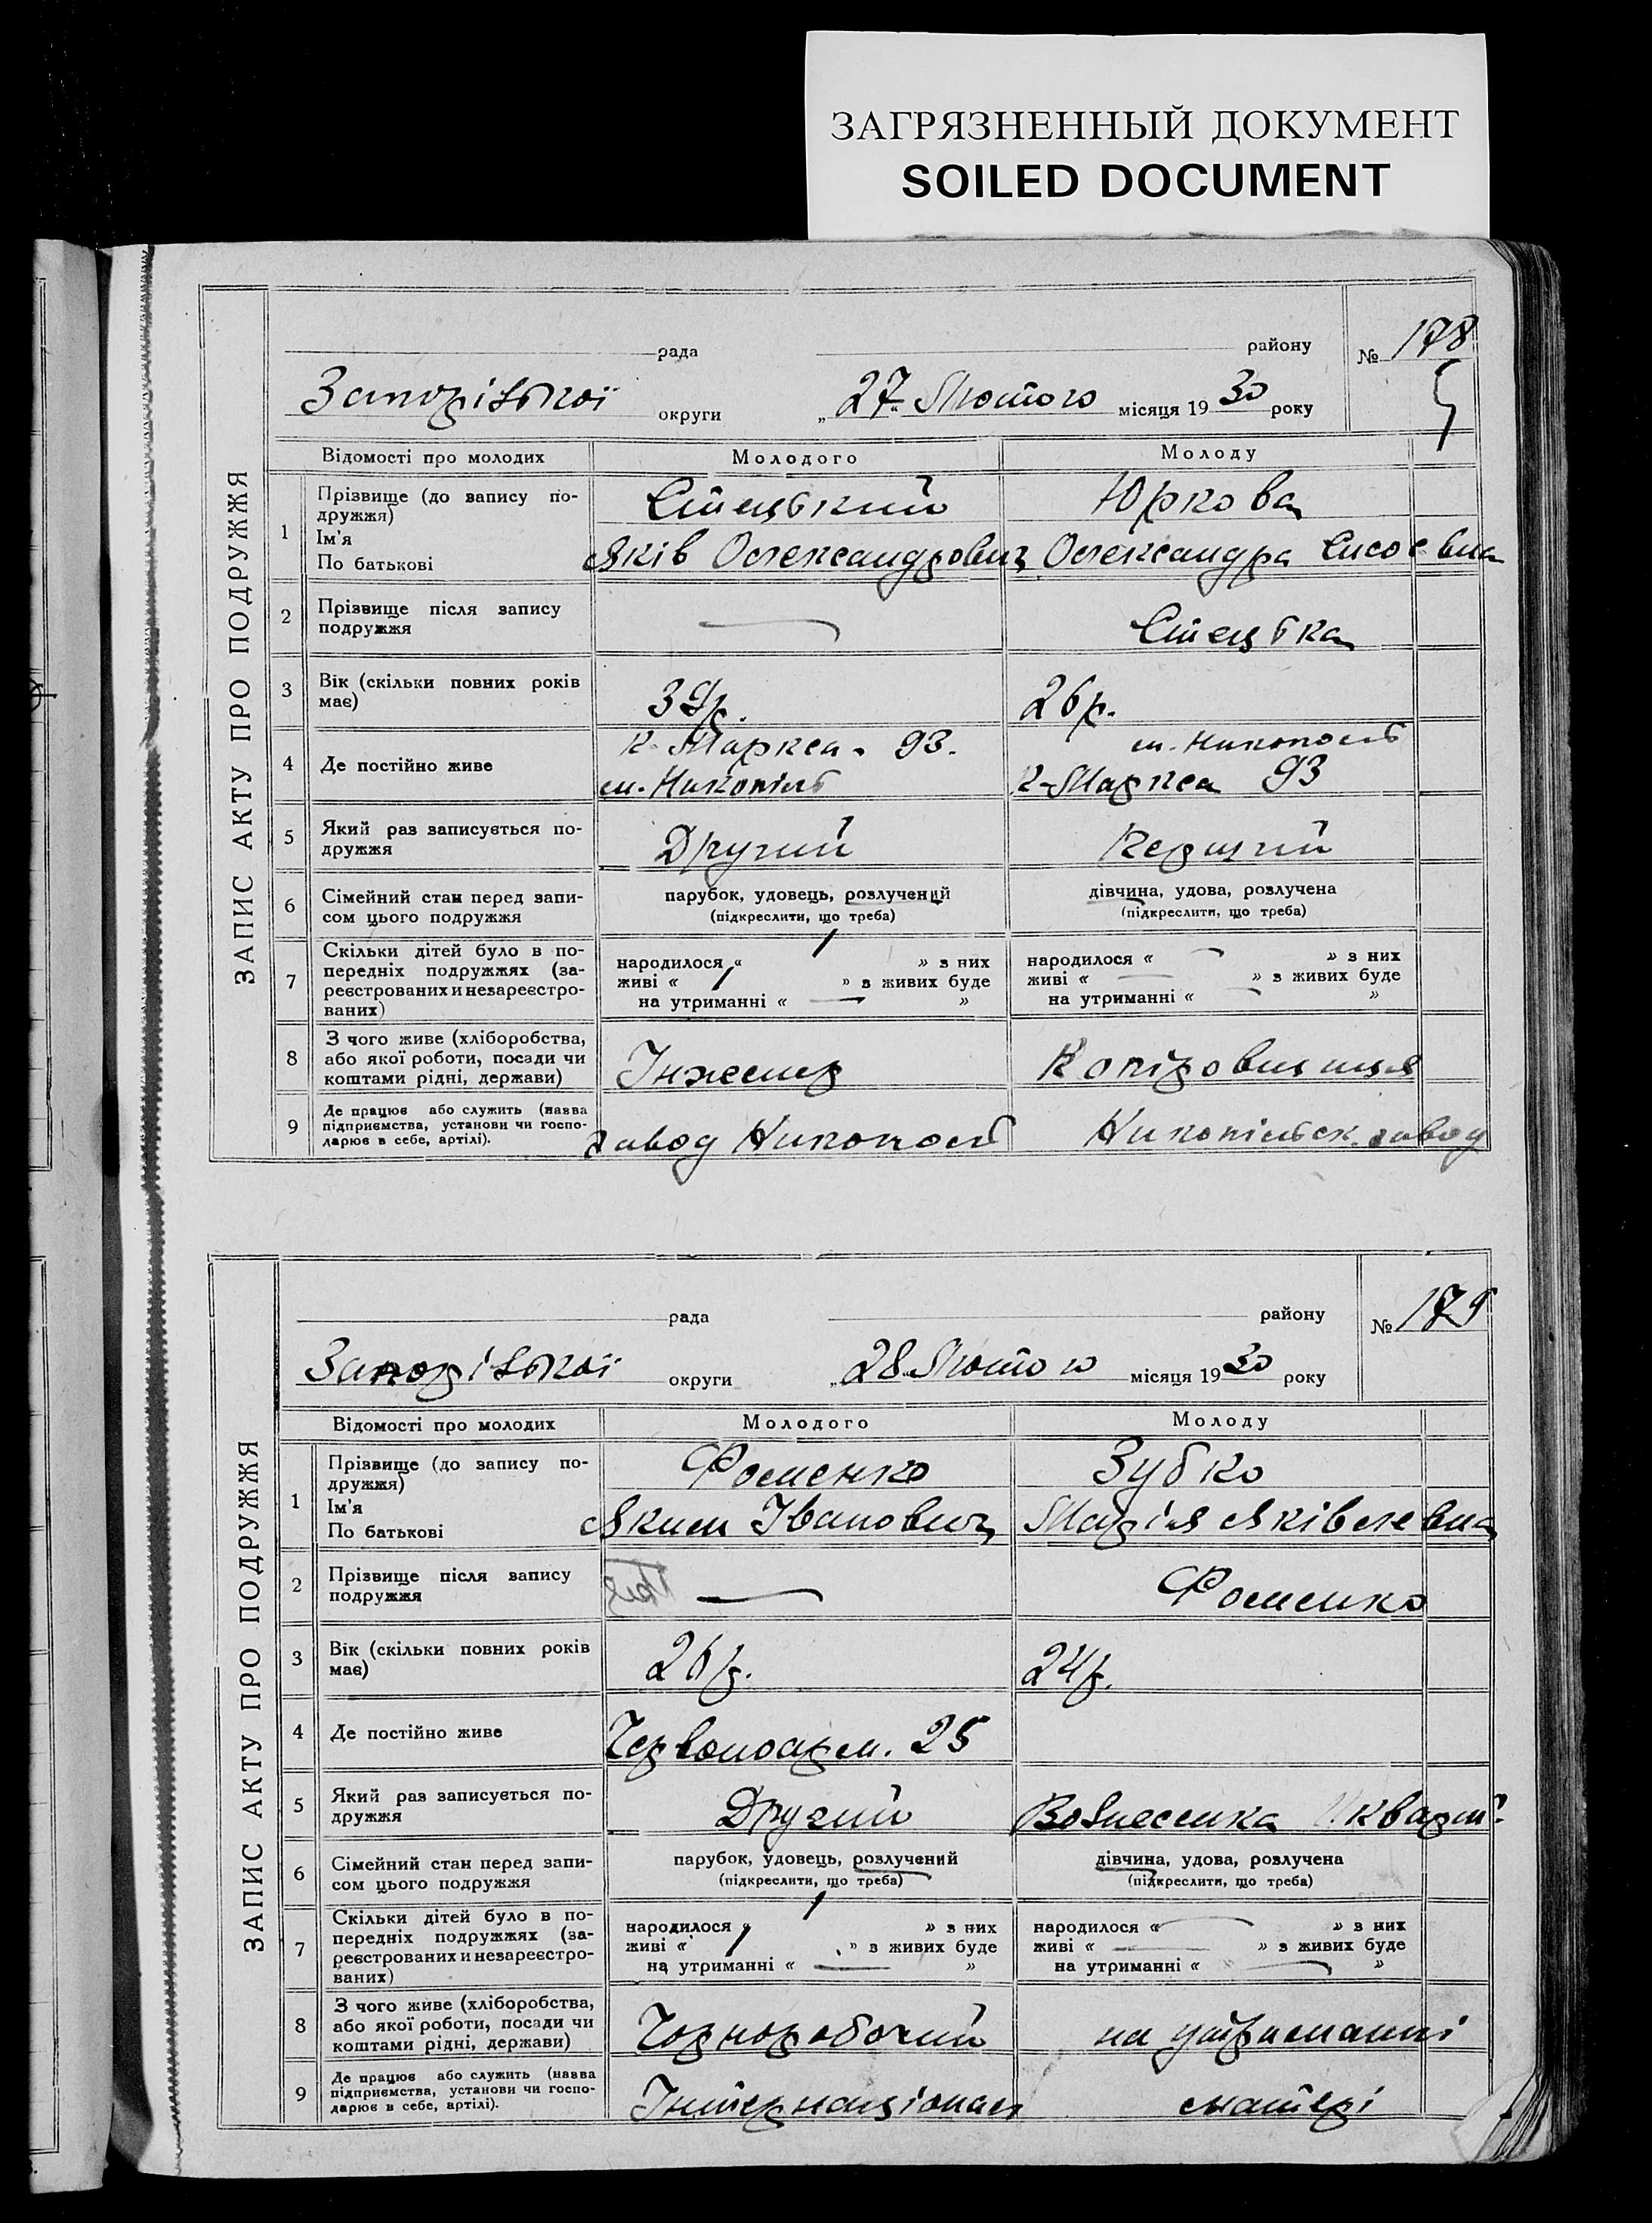 ЗАГРЯЗНЕННЫЙ ДОКУМЕНТ
SOILED DOCUMENT
ЗАПИС АКТУ ПРО ПОДРУЖЖЯ
рада району № 178
Запорізької округи „27“ Лютого місяця 1930 року
Відомості про молодих Молодого Молоду
1 Прізвище (до запису по-
дружжя) Стецький Юркова
Ім'я
По батькові Яків Олександрович Олександра Сисоєвна
2 Прізвище після запису
подружжя — Стецька
3 Вік (скільки повних років
має) 39р. 26р.
4 Де постійно живе К-Маркса. 93. м. Никополь
м. Нікопіль К-Маркса 93
5 Який раз записується по-
дружжя Другий Перший
6 Сімейний стан перед запи-
сом цього подружжя
парубок, удовець, розлучений дівчина, удова, розлучена
(підкреслити, що треба) (підкреслити, що треба)
7 Скільки дітей було в по-
передніх подружжях (за-
реєстрованих и незареєстро-
ваних)
народилося « 1 » з них народилося « — » з них
живі « 1 » з живих буде живі « — » з живих буде
на утриманні « — » на утриманні « — »
8 З чого живе (хліборобства,
або якої роботи, посади чи
коштами рідні, держави) Інженер Копіровщиця
9 Де працює або служить (назва
підприємства, установи чи госпо-
дарює в себе, артілі). завод Никополь Никопільск. завод
ЗАПИС АКТУ ПРО ПОДРУЖЖЯ
рада району № 179
Запорізької округи „28“ Лютого місяця 1930 року
Відомості про молодих Молодого Молоду
1 Прізвище (до запису по-
дружжя) Фоменко Зубко
Ім'я
По батькові Яким Іванович Марія Яківлевна
2 Прізвище після запису
подружжя — Фоменко
3 Вік (скільки повних років
має) 26р. 24р.
4 Де постійно живе Червоноарм. 25
5 Який раз записується по-
дружжя Другий Вознесенка
6 Сімейний стан перед запи-
сом цього подружжя
парубок, удовець, розлучений дівчина, удова, розлучена
(підкреслити, що треба) (підкреслити, що треба)
7 Скільки дітей було в по-
передніх подружжях (за-
реєстрованих и незареєстро-
ваних)
народилося « 1 » з них народилося « — » з них
живі « 1 » з живих буде живі « — » з живих буде
на утриманні « — » на утриманні « — »
8 З чого живе (хліборобства,
або якої роботи, посади чи
коштами рідні, держави) Чорноробочий на утриманні
9 Де працює або служить (назва
підприємства, установи чи госпо-
дарює в себе, артілі). Інтернаціонал матері